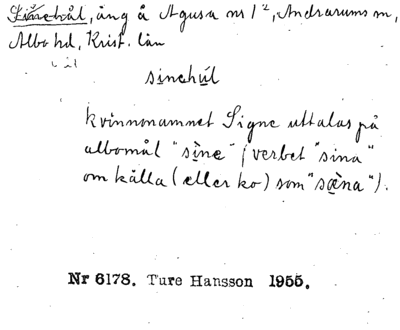 Sinehål, äng å Agusa nr 1², Andrarums sn,
Albo hd, Krist. län
sinehúl
kvinnonamnet Signe uttalas på
albomål "sìne" (verbet "sina"
om källa (eller ko) som "sæ̀na").
Nr 6178. Ture Hansson 1955.